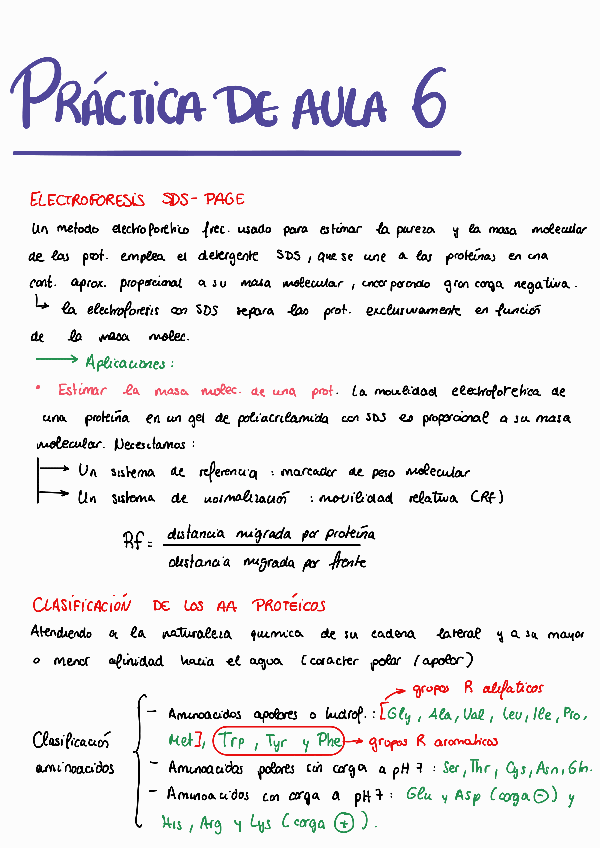 PRÁCTICA DE AULA 6
ELECTROFORESIS SDS-PAGE
Un metodo electroforetico frec. usado para estimar la pureza y la masa molecular
de las prot. emplea el detergente SDS, que se une a las proteínas en una
cant. aprox. proporcional a su masa molecular, incorporando gran carga negativa.
↳ la electroforesis con SDS separa las prot. exclusivamente en función
de la masa molec.
→ Aplicaciones:
• Estimar la masa molec. de una prot. La movilidad electroforetica de
una proteína en un gel de poliacrilamida con SDS es proporcional a su masa
molecular. Necesitamos:
→ Un sistema de referencia : marcador de peso molecular
→ Un sistema de normalización : movilidad relativa (Rf)
Rf = distancia migrada por proteína
distancia migrada por frente
CLASIFICACIÓN DE LOS AA PROTÉICOS
Atendiendo a la naturaleza quimica de su cadena lateral y a su mayor
o menor afinidad hacia el agua (caracter polar/apolar)
→ grupos R alifaticos
- Aminoacidos apolares o hidrof.: [Gly, Ala, Val, Leu, Ile, Pro,
Met], Trp, Tyr y Phe → grupos R aromaticos
Clasificación
aminoacidos
- Aminoacidos polares sin carga a pH 7 : Ser, Thr, Cys, Asn, Gln.
- Aminoacidos con carga a pH 7 : Glu y Asp (carga ⊖) y
His, Arg y Lys (carga ⊕).